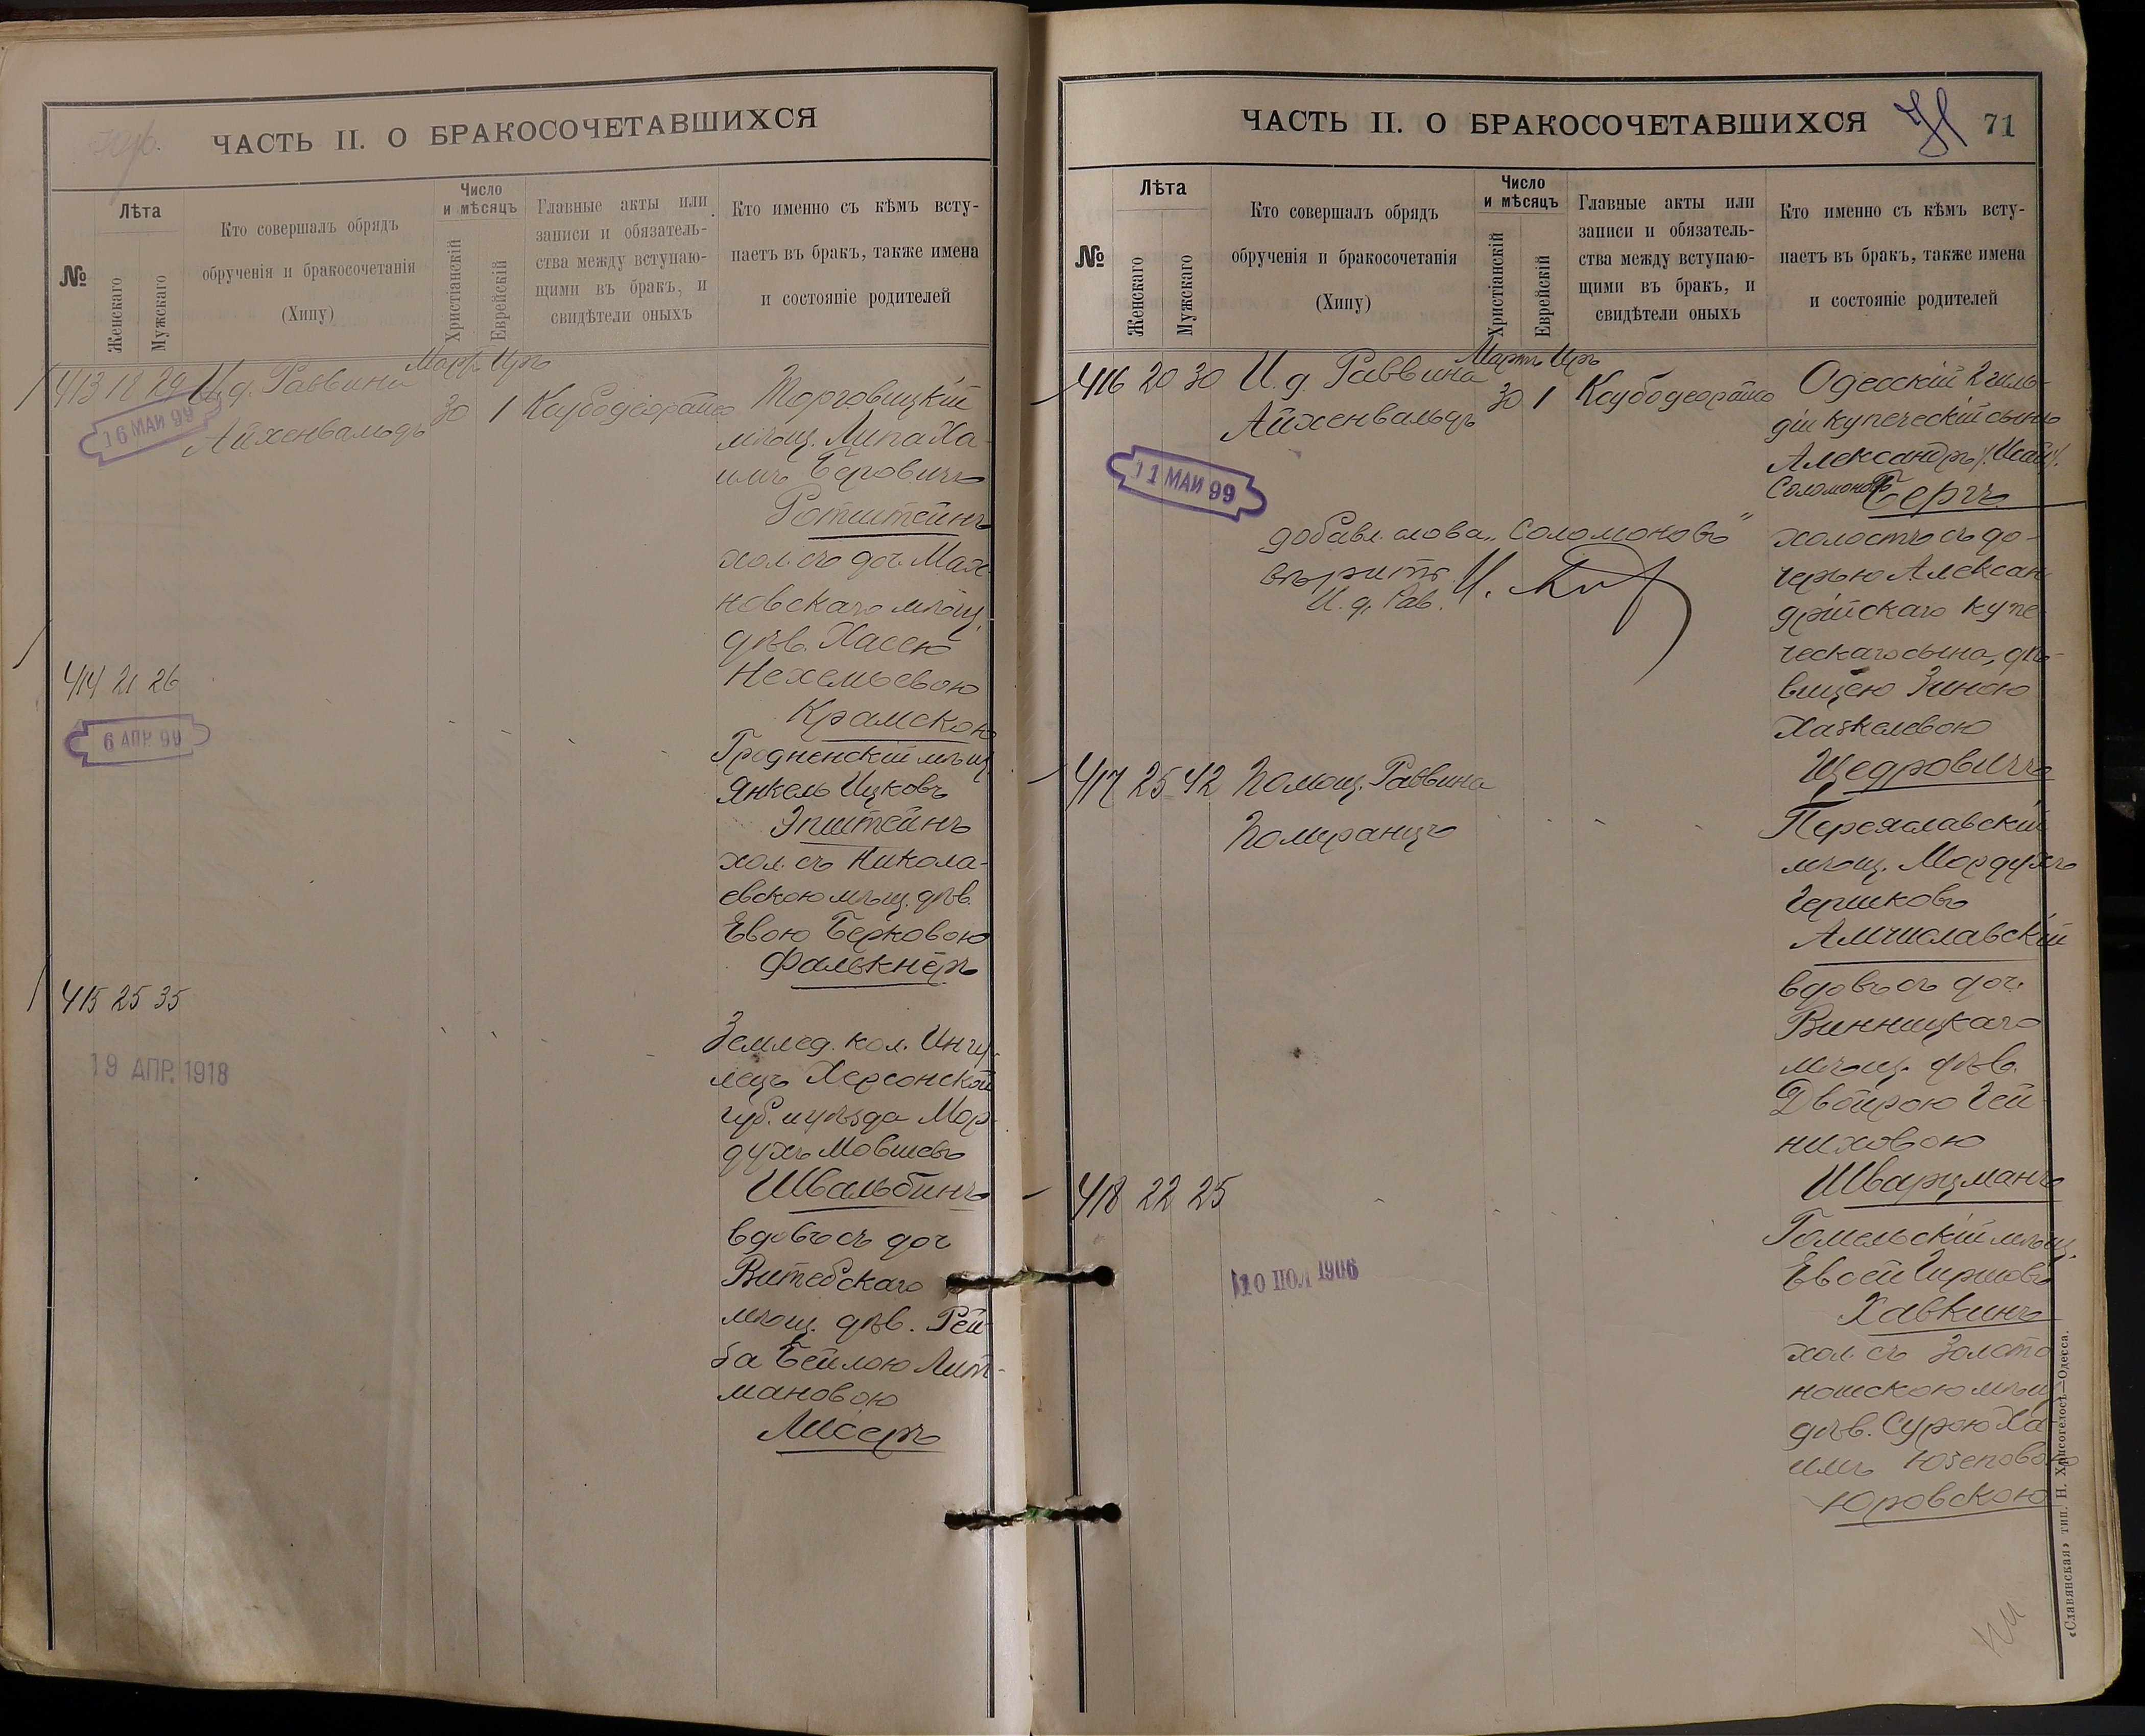 ЧАСТЬ II. О БРАКОСОЧЕТАВШИХСЯ
№
Лѣта
Женскаго
Мужскаго
Кто совершалъ обрядъ
обрученія и бракосочетанія
(Хипу)
Число
и мѣсяцъ
Христіанскій
Еврейскій
Главные акты или
записи и обязатель-
ства между вступаю-
щими въ бракъ, и
свидѣтели оныхъ
Кто именно съ кѣмъ всту-
паетъ въ бракъ, также имена
и состояніе родителей
413 18 29 И. д. Раввина
Айхенвальдъ
Мартъ Иръ
30 1
16 МАЙ 99
Торговицкій
мѣщ. Липа Ха-
имъ Беровичъ
Ротштейнъ
хол. съ доч. Мах-
новскаго мѣщ.
дѣв. Хасею
Нехемьевою
Крамскою
414 21 26
6 АПР. 99
Гродненскій мѣщ.
Янкель Ицковъ
Эпштейнъ
хол. съ Никола-
евскою мѣщ. дѣв.
Евою Берковою
Фалькнеръ
415 25 35
19 АПР. 1918
Землед. кол. Ингу-
лецъ Херсонской
губ. и уѣзда Мор-
духъ Мовшевъ
Швальбинъ
вдовъ съ доч
Витебскаго
мѣщ. дѣв. Рей-
за Бейлою Лит-
мановою
Лисеръ
ЧАСТЬ II. О БРАКОСОЧЕТАВШИХСЯ
71
№
Лѣта
Женскаго
Мужскаго
Кто совершалъ обрядъ
обрученія и бракосочетанія
(Хипу)
Число
и мѣсяцъ
Христіанскій
Еврейскій
Главные акты или
записи и обязатель-
ства между вступаю-
щими въ бракъ, и
свидѣтели оныхъ
Кто именно съ кѣмъ всту-
паетъ въ бракъ, также имена
и состояніе родителей
416 20 30 И. д. Раввина
Айхенвальдъ
Мартъ Иръ
30 1
11 МАЙ 99
добавл. слова „Соломоновъ"
вѣрить
И. д. Рав.
Одесскій 2 гиль-
діи купеческій сынъ
Александръ /Исай/
Соломоновъ Бергъ
холостъ съ до-
черью Алексан
дрійскаго купе
ческаго сына, дѣ-
вицею Зиною
Хаскелевою
Щедровичъ
417 25 42 Помощ. Раввина
Померанцъ
Переяславскій
мѣщ. Мордухъ
Гершковъ
Амчиславскій
вдовъ съ доч.
Винницкаго
мѣщ. дѣв.
Двойрою Гей-
ниховою
Шварцманъ
418 22 25
10 ІЮЛ 1906
Гомельскій мѣщ.
Евсей Гиршовъ
Хавкинъ
хол. съ Золото
ношскою мѣщ
дѣв. Сурою Ха-
имъ Юзеповою
Юровскою
«Славянская» тип. Н. Хрисогелосъ—Одесса.